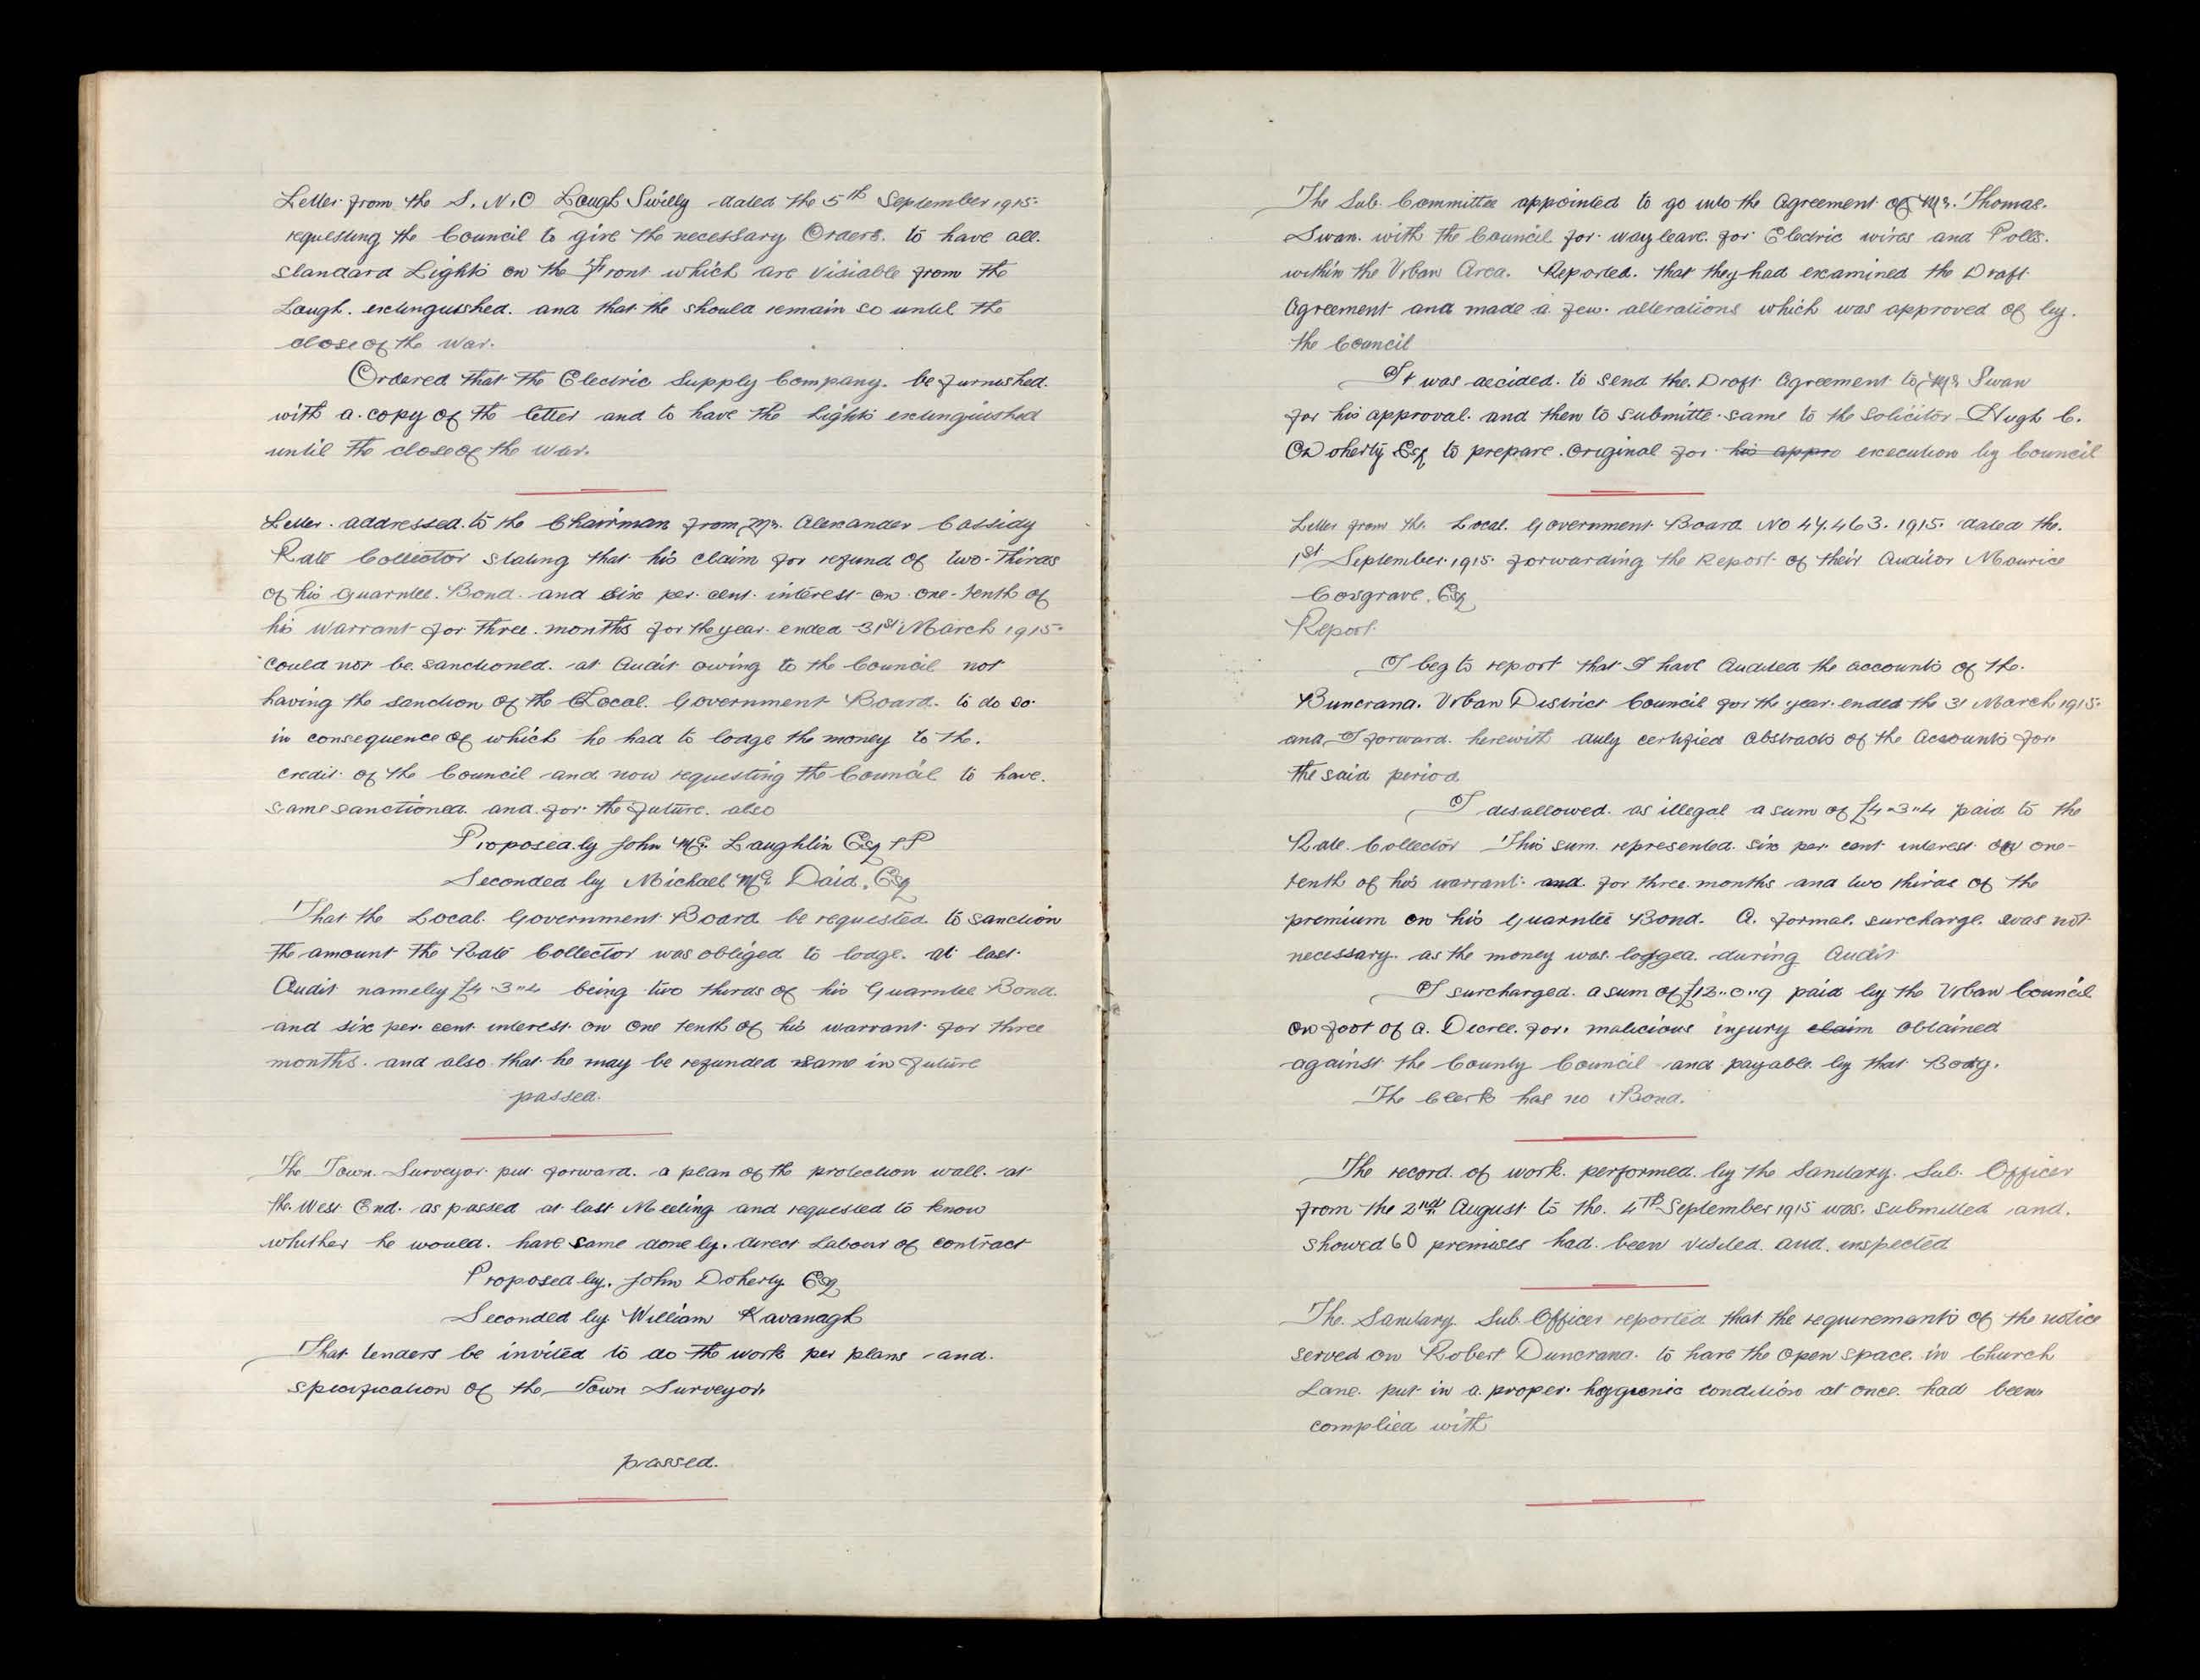 Letter from the S.N.O Lough Swilly dated the 5th September 1915
requesting the Council to give the necessary Orders. to have all.
standard Lights on the Front which are visiable from the
Lough. extinguished. and that the should remain so until the
close of the war.
Ordered that the Electric Supply Company. be furnished.
with a. copy of the letter and to have the lights extinguished
until the close of the war.
Letter. addressed. to the Chairman from Mr. Alexander Cassidy
Rate Collector stating that his claim for refund of two-thirds
of his Guarntee. Bond. and six per. cent. interest on one-tenth of
his warrant for three. months for the year. ended 31st March 1915.
could not be. sanctioned. at Audit owing to the Council not
having the sanction of the Local. Government Board. to do so.
in consequence of which he had to lodge the money to the.
credit of the Council and now requesting the Council to have.
same sanctioned. and. for the future. also
Proposed by John Mc. Laughlin Esq JP
Seconded by Michael Mc Daid. Esq
That the Local. Government Board be requested to sanction
the amount the Rate Collector was obliged to lodge. at last
Audit nameley £4"3"4 being two thirds of his Guarntee Bond.
and six per. cent. interest. on one tenth of his warrant for three
months. and also that he may be refunded same in future
passed.
The Town. Surveyor. put forward. a plan of the protection wall. at
the. West End. as passed at last Meeting and requested to know
whither he would. have same done by. direct Labour of contract
Proposed by. John Doherty Esq
Seconded by William Kavanagh
That tenders be invited to do the work per plans and.
specification of the Town Surveyor.
passed.
The Sub. Committee appointed to go into the Agreement of Mr. Thomas.
Swan. with the Council for way leave. for Electric wires and Polls.
within the Urban Area. Reported. that they had examined the Draft
Agreement and made a few. alterations which was approved of by.
the Council
It was decided. to send the. Draft Agreement to Mr Swan
for his approval. and then to submitte same to the solicitor Hugh C.
O Doherty Esq to prepare. original for his appro execution by Council
Letter from the. Local. Government Board No 47.463. 1915. dated the.
1st September. 1915. forwarding the Report of their Auditor Maurice
Cosgrave. Esq
Report.
I beg to report that I have Audited the accounts of the.
Buncrana. Urban District Council for the year. ended the 31 March 1915.
and I forward. herewith duly certified Abstracts of the Accounts for.
the said period
I disallowed. as illegal a sum of £4"3"4 paid to the
Rate. Collector This sum. represented. six per. cent interest on one-
tenth of his warrant and for three. months and two thirds of the
premium on his Guarntee Bond. A. formal. surcharge. was not
necessary. as the money was. lodged. during Audit
I surcharged. a sum of £12"0"9 paid by the Urban Council
on foot of a. Decree. for. malicious injury claim obtained
against the County Council and payable by that Body.
The Clerk has no Bond.
The record. of work. performed. by the Sanitary. Sub. Officer
from the 2nd August. to the. 4th September 1915 was. submitted and.
showed 60 premises had. been visited. and. inspected
The. Sanitary. Sub. Officer reported that the requirements of the notice
served on Robert Duncrana. to have the open space. in Church
Lane. put in a. proper. hygienic condition at once. had been
complied with